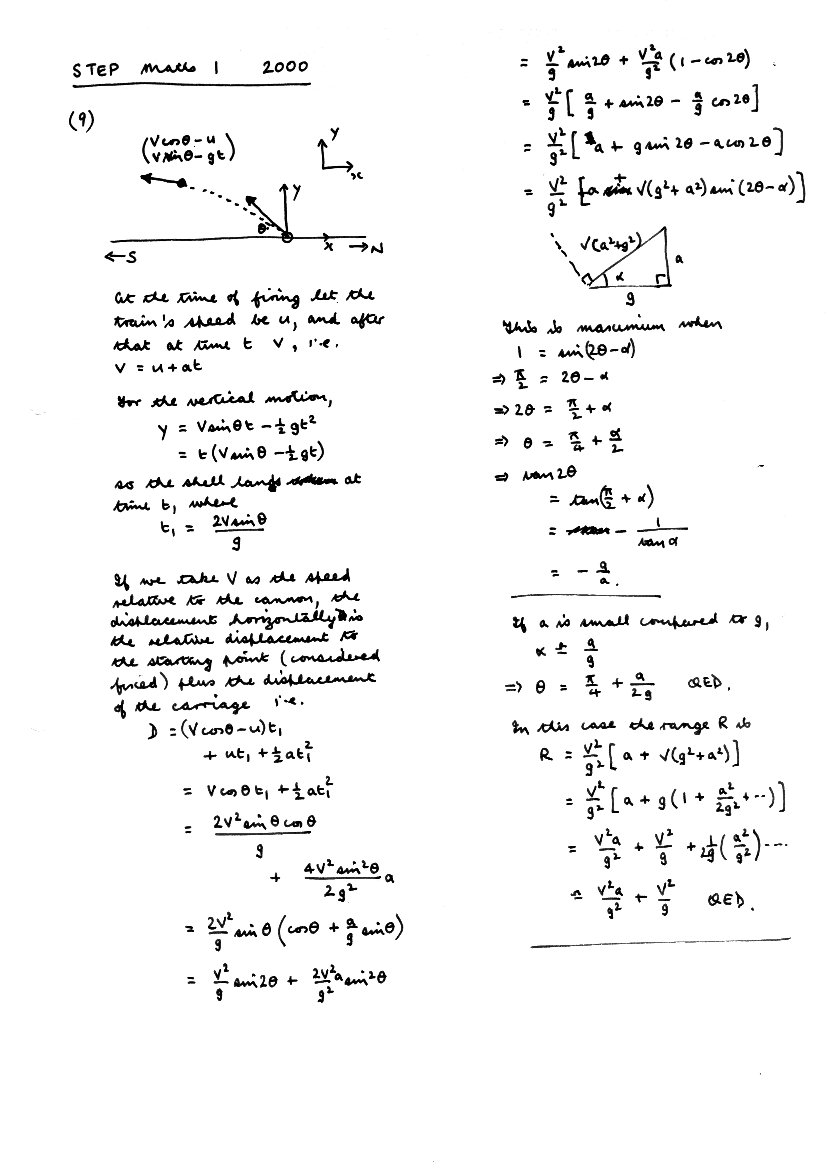 STEP Maths 1 2000
(9)
(Vcosθ-u)
(Vsinθ-gt)
y
x
y
θ
x
←S
→N
At the time of firing let the
train's speed be u, and after
that at time t V, i.e.
V = u+at
For the vertical motion,
y = Vsinθt - ½gt²
= t(Vsinθ - ½gt)
so the shell lands at
time t₁ where
t₁ = 2Vsinθ/g
If we take V as the speed
relative to the cannon, the
displacement horizontally is
the relative displacement to
the starting point (considered
fixed) plus the displacement
of the carriage i.e.
D = (Vcosθ-u)t₁
+ ut₁ + ½at₁²
= Vcosθt₁ + ½at₁²
= 2V²sinθcosθ/g
+ 4V²sin²θ/2g² a
= 2V²/g sinθ(cosθ + a/g sinθ)
= V²/g sin2θ + 2V²a/g² sin²θ
= V²/g sin2θ + V²a/g² (1-cos2θ)
= V²/g [a/g + sin2θ - a/g cos2θ]
= V²/g² [a + gsin2θ - acos2θ]
= V²/g² [a + √(g²+a²)sin(2θ-α)]
√(a²+g²)
a
α
g
This is maximum when
1 = sin(2θ-α)
⇒ π/2 = 2θ-α
⇒ 2θ = π/2 + α
⇒ θ = π/4 + α/2
⇒ tan2θ
= tan(π/2 + α)
= - 1/tanα
= - g/a.
If a is small compared to g,
α ≐ a/g
⇒ θ = π/4 + a/2g QED.
In this case the range R is
R = V²/g² [a + √(g²+a²)]
= V²/g² [a + g(1 + a²/2g² + ...)]
= V²a/g² + V²/g + 1/2g (a²/g²)....
≏ V²a/g² + V²/g QED.